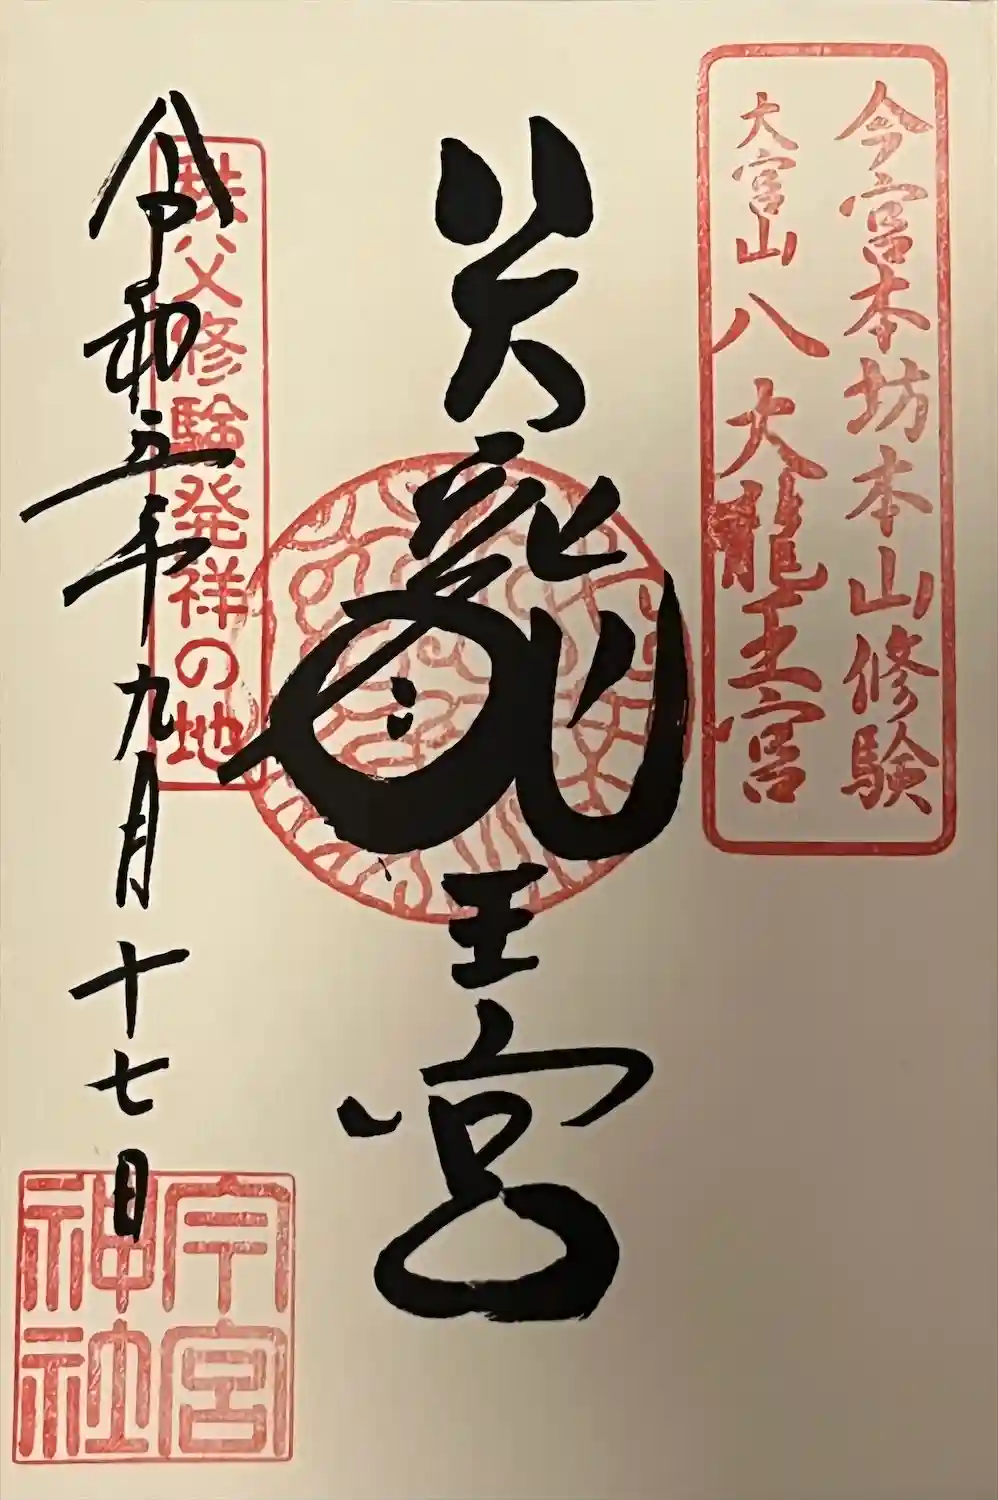 今宮本坊本山修験
大宮山 八大龍王宮
八大龍王宮
秩父修験発祥の地
令和五年九月十七日
今宮
神社